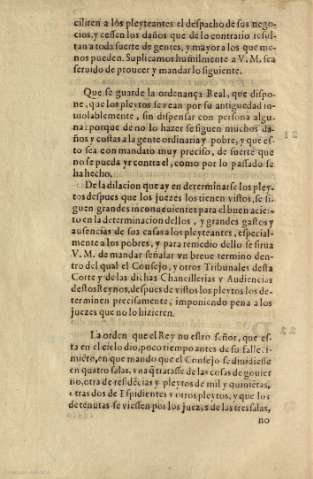 ciliren a los pleyteantes el despacho de sus nego-
cios, y cessen los daños que de lo contrario resul-
tan a toda suerte de gentes, y mayor a los que me-
nos pueden. Suplicamos humilmente a V. M. sea
seruido de proueer y mandar lo siguiente.
Que se guarde la ordenança Real, que dispo-
ne, que los pleytos se vean por su antiguedad in-
uiolablemente, sin dispensar con persona algu-
na: porque de no lo hazer se siguen muchos da-
ños y costas a la gente ordinaria y pobre, y que es-
to sea con mandato muy preciso, de suerte que
no se pueda yr contra el, como por lo passado se
ha hecho.
De la dilacion que ay en determinarse los pley-
tos despues que los juezes los tienen vistos, se si-
guen grandes inconuenientes para el buen acier-
to en la determinacion dellos, y grandes gastos y
ausencias de sus casas a los pleyteantes, especial-
mente a los pobres, y para remedio dello se sirua
V. M. de mandar señalar vn breue termino den-
tro del qual el Consejo, y otros Tribunales desta
Corte y de las dichas Chancillerias y Audiencias
destos Reynos, despues de vistos los pleytos los de-
terminen precisamente, imponiendo pena a los
juezes que no lo hizieren.
La orden que el Rey nuestro señor, que es-
ta en el cielo dio, poco tiempo antes de su falle-
miēto, en que mando que el Consejo se diuidiesse
en quatro salas, vna q̃ tratasse de las cosas de gouier
no, otra de residēcias y pleytos de mil y quiniētas,
otras dos de Espidientes y otros pleytos, y que los
de tenutas se viessen por los juezes de las tres salas,
no